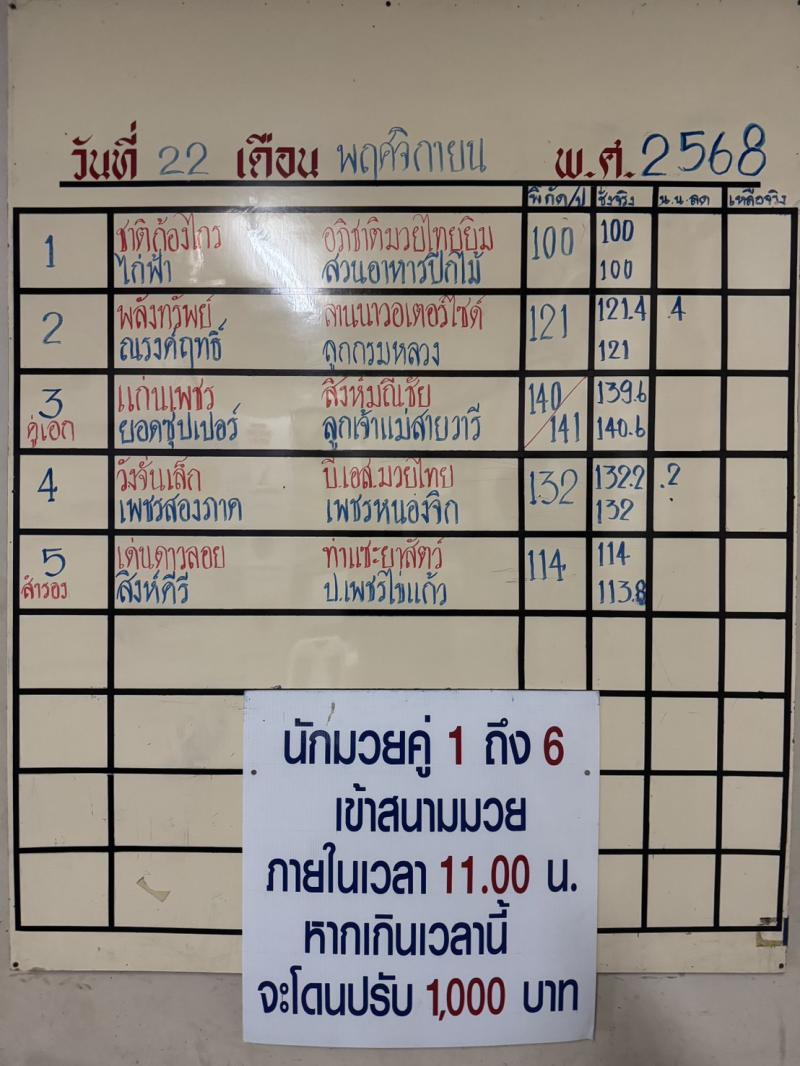 วันที่ 22 เดือน พฤศจิกายน พ.ศ. 2568
พิกัด/ป ชั่งจริง น.น.ลด เหลือจริง
1 ชาติก้องไกร อภิชาติมวยไทยยิม 100 100
ไก่ฟ้า สวนอาหารปีกไม้ 100
2 พลังทรัพย์ ลานนาวอเตอร์ไซด์ 121 121.4 .4
ณรงค์ฤทธิ์ ลูกกรมหลวง 121
3 แก่นเพชร สิงห์มณีชัย 140 139.6
คู่เอก ยอดซุปเปอร์ ลูกเจ้าแม่สายวารี 141 140.6
4 วังจั่นเล็ก บี.เอส.มวยไทย 132 132.2 .2
เพชรสองภาค เพชรหนองจิก 132
5 เด่นดาวลอย ท่าแซะยาสัตว์ 114 114
สำรอง สิงห์คีรี ป.เพชรไข่แก้ว 113.8
นักมวยคู่ 1 ถึง 6
เข้าสนามมวย
ภายในเวลา 11.00 น.
หากเกินเวลานี้
จะโดนปรับ 1,000 บาท